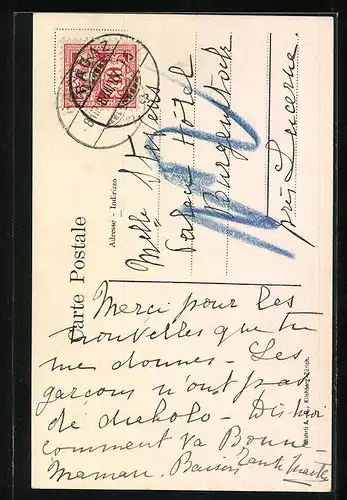 Carte Postale
Adresse - Indirizzo
Melle Stevens
Palace Hôtel
Burgenstock
près Lucerne.
Merci pour les
nouvelles que tu
me donnes - Les
garçons n'ont pas
de diabolo - Dis moi
comment va Bonne
Maman. Baisers Tante
Kilchberg-Zürich.